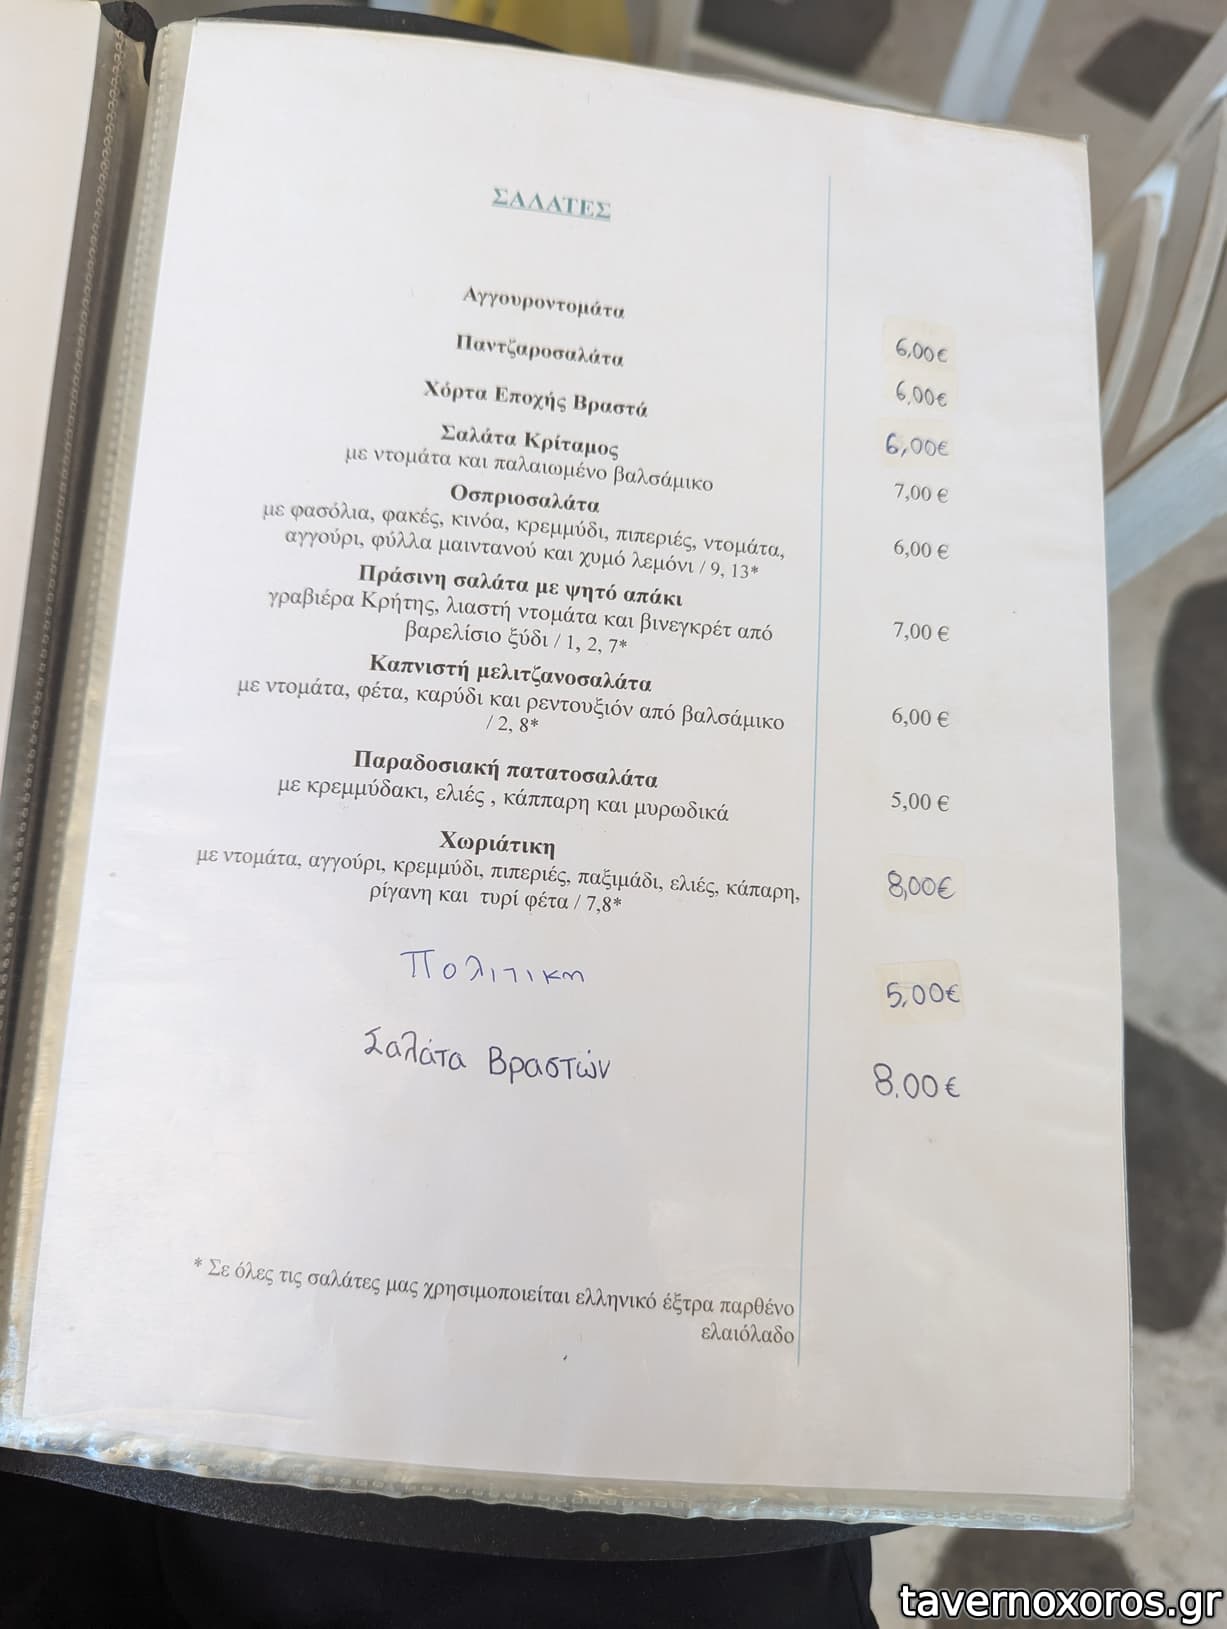 ΣΑΛΑΤΕΣ
Αγγουροντομάτα 6,00€
Παντζαροσαλάτα 6,00€
Χόρτα Εποχής Βραστά 6,00€
Σαλάτα Κρίταμος 7,00 €
με ντομάτα και παλαιωμένο βαλσάμικο
Οσπριοσαλάτα 6,00 €
με φασόλια, φακές, κινόα, κρεμμύδι, πιπεριές, ντομάτα,
αγγούρι, φύλλα μαιντανού και χυμό λεμόνι / 9, 13*
Πράσινη σαλάτα με ψητό απάκι 7,00 €
γραβιέρα Κρήτης, λιαστή ντομάτα και βινεγκρέτ από
βαρελίσιο ξύδι / 1, 2, 7*
Καπνιστή μελιτζανοσαλάτα 6,00 €
με ντομάτα, φέτα, καρύδι και ρεντουξιόν από βαλσάμικο
/ 2, 8*
Παραδοσιακή πατατοσαλάτα 5,00 €
με κρεμμύδακι, ελιές , κάππαρη και μυρωδικά
Χωριάτικη 8,00€
με ντομάτα, αγγούρι, κρεμμύδι, πιπεριές, παξιμάδι, ελιές, κάπαρη,
ρίγανη και τυρί φέτα / 7,8*
Πολιτικη 5,00€
Σαλάτα Βραστών 8.00€
* Σε όλες τις σαλάτες μας χρησιμοποιείται ελληνικό έξτρα παρθένο
ελαιόλαδο
tavernoxoros.gr